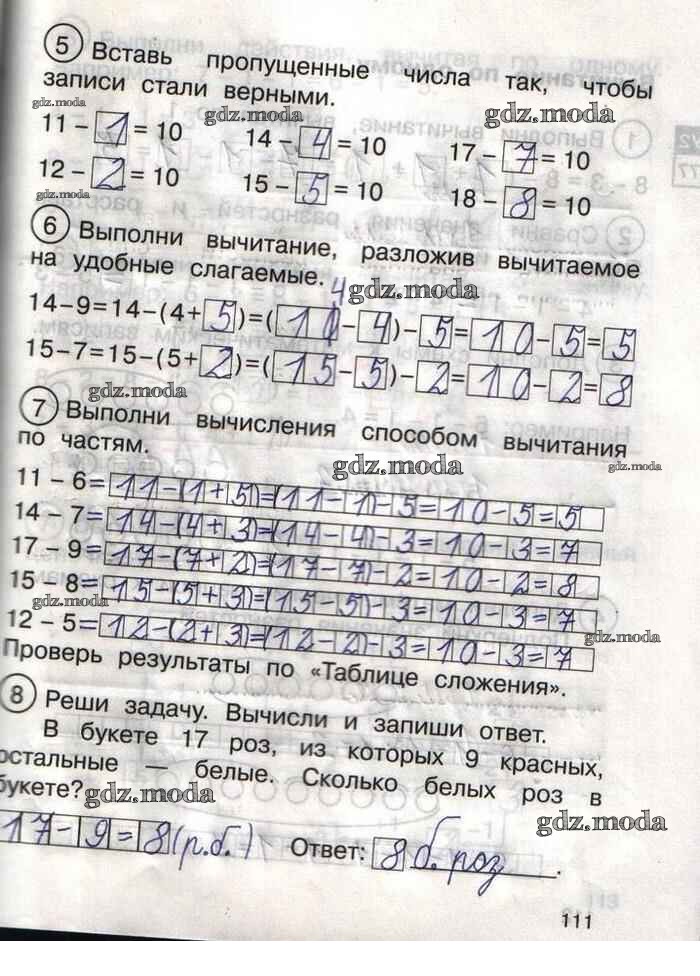 5 Вставь пропущенные числа так, чтобы
записи стали верными.
gdz.moda gdz.moda gdz.moda
11 – 1 = 10 14 – 4 = 10 17 – 7 = 10
12 – 2 = 10 15 – 5 = 10 18 – 8 = 10
gdz.moda
6 Выполни вычитание, разложив вычитаемое
на удобные слагаемые. 4
gdz.moda
14–9=14–(4+5)=(10–4)–5=10–5=5
15–7=15–(5+2)=(15–5)–2=10–2=8
gdz.moda
7 Выполни вычисления способом вычитания
по частям.
gdz.moda gdz.moda
11 – 6=11–(1+5)=(11–1)–5=10–5=5
14 – 7=14–(4+3)=(14–4)–3=10–3=7
17 – 9=17–(7+2)=(17–7)–2=10–2=8
15 – 8=15–(5+3)=(15–5)–3=10–3=7
gdz.moda
12 – 5=12–(2+3)=(12–2)–3=10–3=7
gdz.moda
Проверь результаты по «Таблице сложения».
8 Реши задачу. Вычисли и запиши ответ.
В букете 17 роз, из которых 9 красных,
остальные — белые. Сколько белых роз в
букете?
gdz.moda gdz.moda
17–9=8(р.б.) Ответ: 8 б. роз.
111